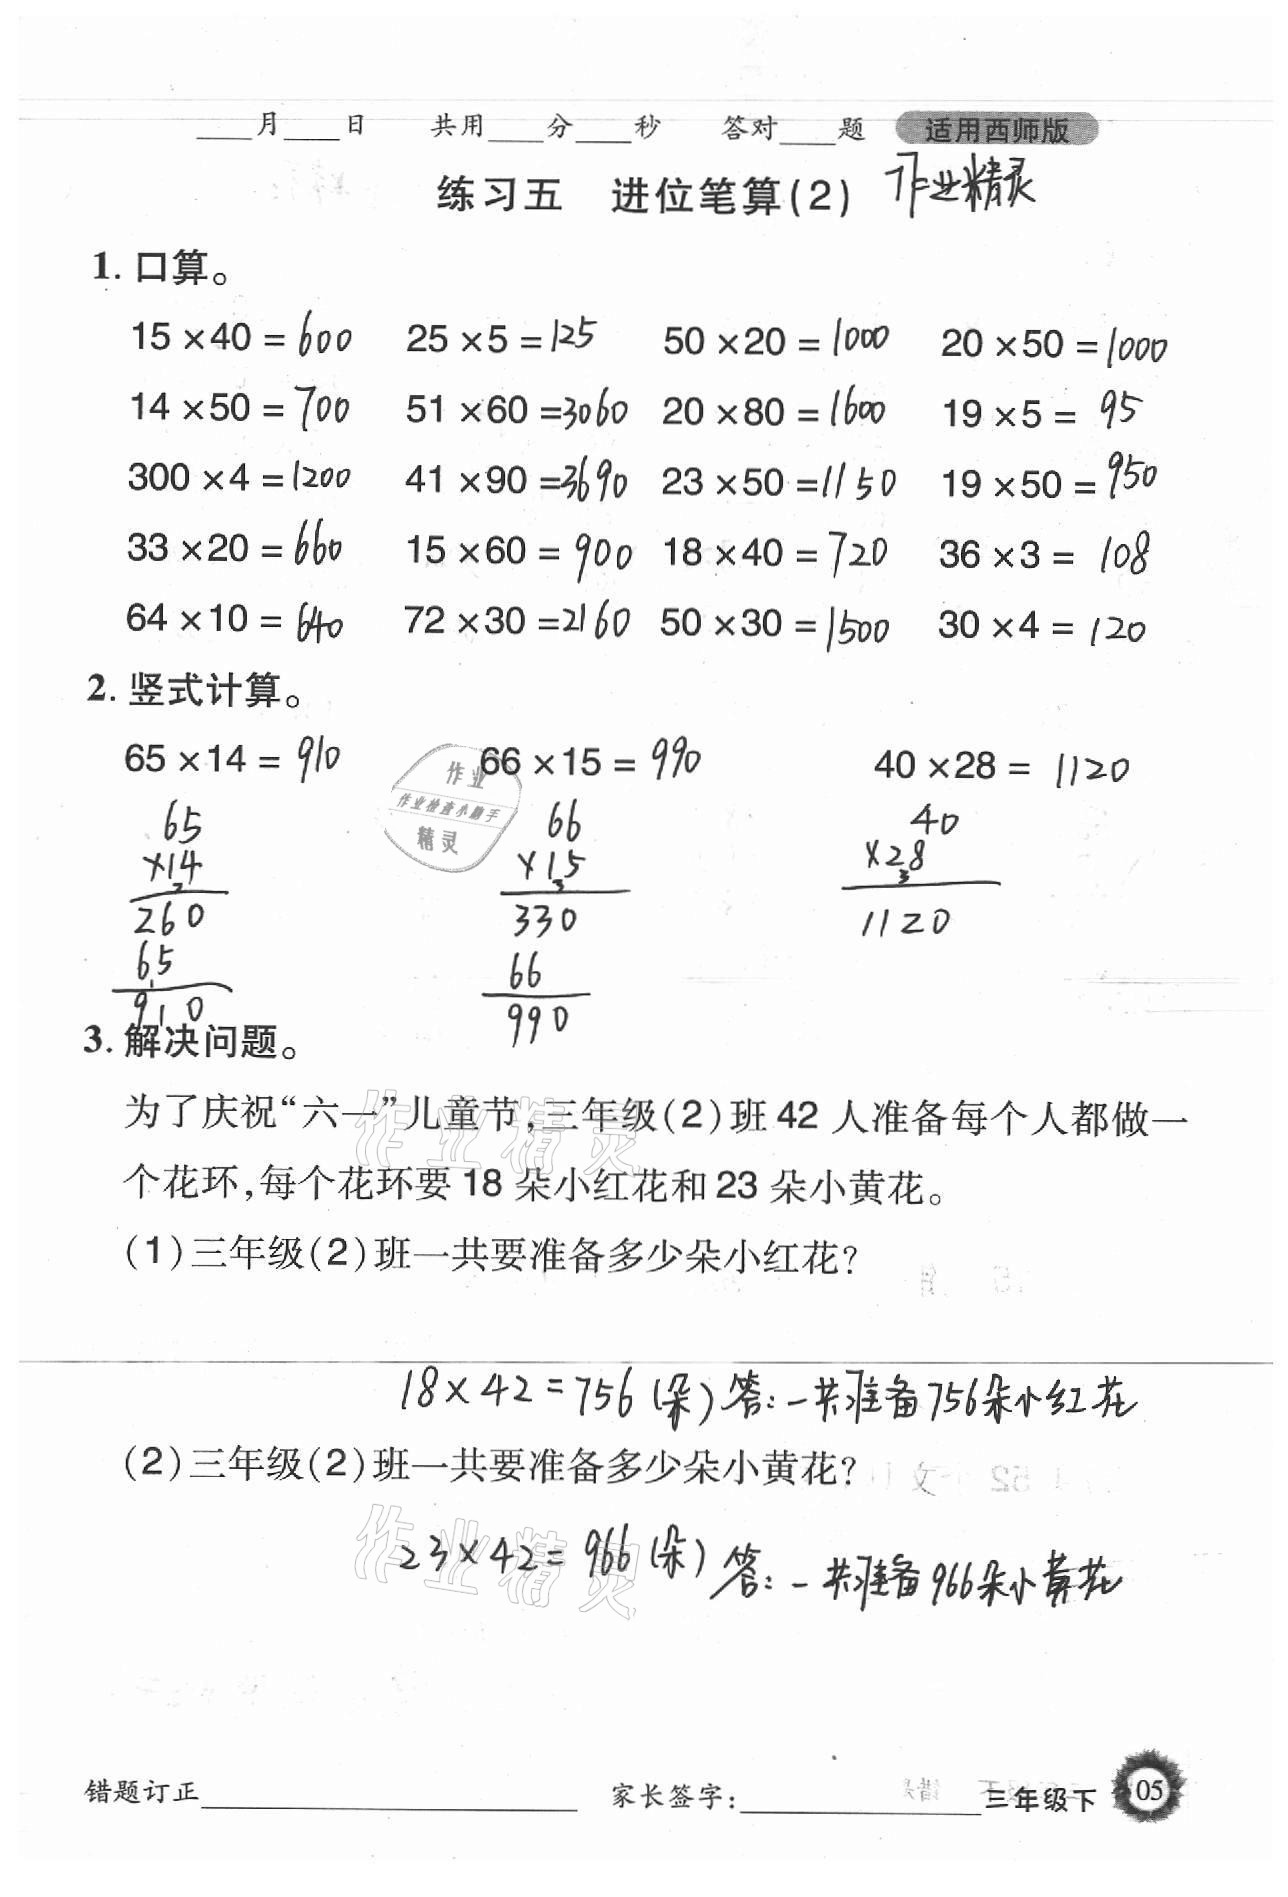 ____月____日 共用____分____秒 答对____题 适用西师版
练习五 进位笔算(2) 作业精灵
1. 口算。
15×40=600 25×5=125 50×20=1000 20×50=1000
14×50=700 51×60=3060 20×80=1600 19×5=95
300×4=1200 41×90=3690 23×50=1150 19×50=950
33×20=660 15×60=900 18×40=720 36×3=108
64×10=640 72×30=2160 50×30=1500 30×4=120
2. 竖式计算。
65×14=910 66×15=990 40×28=1120
作业
作业检查小助手
精灵
65 66 40
×14 ×15 ×28
2 3 3
260 330 1120
65 66
1
910 990
3. 解决问题。
为了庆祝“六一”儿童节,三年级(2)班42人准备每个人都做一
个花环,每个花环要18朵小红花和23朵小黄花。
作业精灵
(1)三年级(2)班一共要准备多少朵小红花?
18×42=756(朵)答:一共准备756朵小红花
(2)三年级(2)班一共要准备多少朵小黄花?
23×42=966(朵)答:一共准备966朵小黄花
作业精灵
错题订正____ 家长签字:____ 三年级下 05